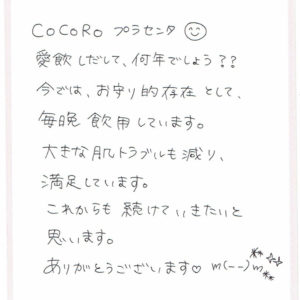 CoCoRo プラセンタ ☺
愛飲しだして、何年でしょう??
今では、お守り的存在として、
毎晩 飲用しています。
大きな肌トラブルも減り、
満足しています。
これからも 続けていきたいと
思います。
ありがとうございます♡ m(--)m